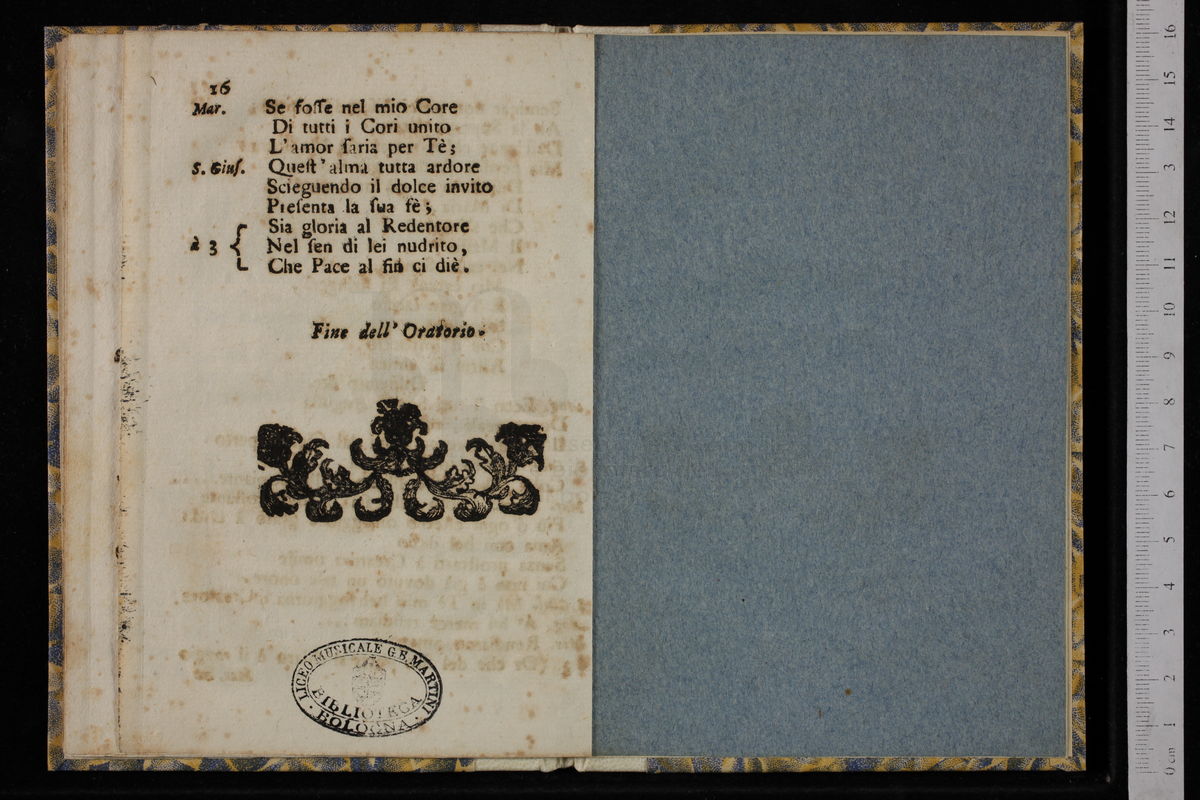 16
Mar. Se foſſe nel mio Core
Di tutti i Cori unito
L'amor ſaria per Tè;
S. Giuſ. Queſt'alma tutta ardore
Scieguendo il dolce invito
Preſenta la ſua fè;
Sia gloria al Redentore
à 3 Nel ſen di lei nudrito,
Che Pace al fin ci diè.
Fine dell'Oratorio.
LICEO MUSICALE G.B. MARTINI
BIBLIOTECA
· BOLOGNA ·
16
15
14
3
12
11
10
9
8
7
6
5
4
3
2
1
0 cm